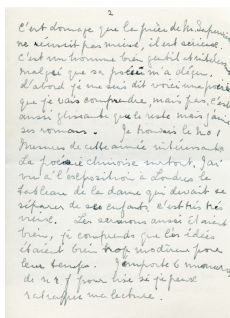 2
c'est dommage que la pièce de M. Supervielle
ne réussit pas mieux, il est sérieux.
c'est un homme bien gentil et
malgré que sa poésie m'a déçu,
d'abord je me suis dit voici une poésie
que je vais comprendre, mais pas, c'est
aussi glissante que le reste mais j'aime
ses romans. Je trouvais le no 1
Mesures de cette année intéressant
La poésie chinoise surtout, j'ai
vu à l'exposition à Londres le
tableau de la dame qui devait se
séparer de ses enfants, c'est très très
vieux. Les sermons aussi étaient
bien, je comprends que les idées
étaient bien trop modernes pour
leur temps. J'emporte 6 numéros
de n r f pour lire si je peux
rattraper ma lecture.